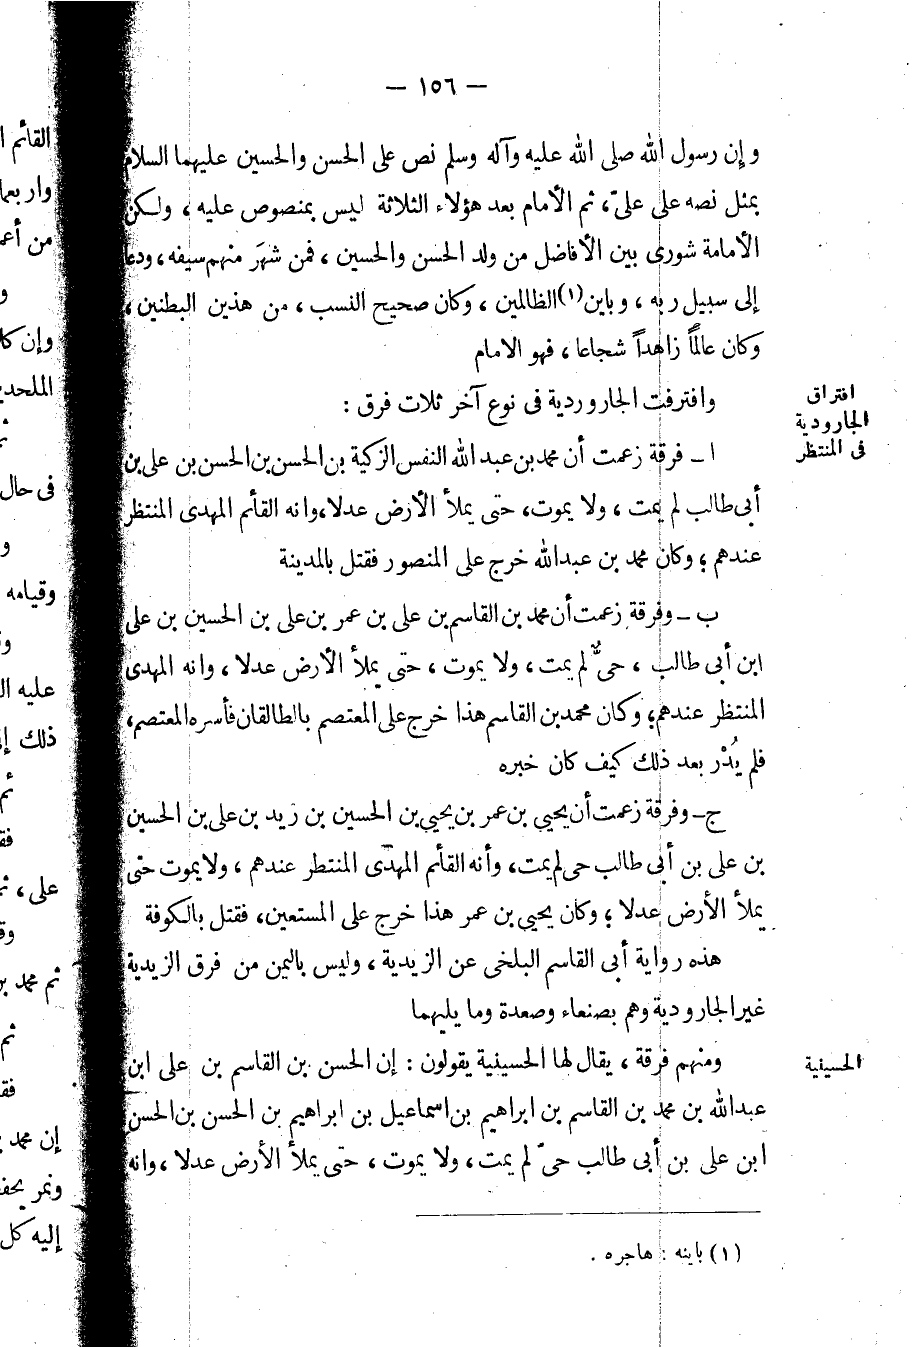 — ١٥٦ —
وإن رسول الله صلى الله عليه وآله وسلم نص على الحسن والحسين عليهما السلام
بمثل نصه على علىّ، ثم الأمام بعد هؤلاء الثلاثة ليس بمنصوص عليه، ولكن
الأمامة شورى بين الأفاضل من ولد الحسن والحسين، فمن شهَر منهم سيفه، ودعا
إلى سبيل ربه، وباين(١) الظالمين، وكان صحيح النسب، من هذين البطنين،
وكان عالماً زاهداً شجاعا، فهو الامام
افتراق
الجارودية
فى المنتظر
وافترقت الجاروردية فى نوع آخر ثلاث فرق:
ا ــ فرقة زعمت أن محمد بن عبد الله النفس الزكية بن الحسن بن الحسن بن على بن
أبى طالب لم يمت، ولا يموت، حتى يملأ الأرض عدلا، وانه القأئم المهدى المنتظر
عندهم؛ وكان محمد بن عبدالله خرج على المنصور فقتل بالمدينة
ب ــ وفرقة زعمت أن محمد بن القاسم بن على بن عمر بن على بن الحسين بن على
ابن أبى طالب، حىٌّ لم يمت، ولا يموت، حتى يملأ الأرض عدلا، وانه المهدى
المنتظر عندهم؛ وكان محمد بن القاسم هذا خرج على المعتصم بالطالقان فأسره المعتصم،
فلم يُدْر بعد ذلك كيف كان خبره
ج ــ وفرقة زعمت أن يحيى بن عمر بن يحيى بن الحسين بن زيد بن على بن الحسين
بن على بن أبى طالب حى لم يمت، وأنه القأئم المهدّى المنتطر عندهم، ولا يموت حتى
يملأ الأرض عدلا؛ وكان يحيى بن عمر هذا خرج على المستعين، فقتل بالكوفة
هذه رواية أبى القاسم البلخى عن الزيدية، وليس باليمن من فرق الزيدية
غير الجارودية وهم بصنعاء وصعدة وما يليهما
الحسينية
ومنهم فرقة، يقال لها الحسينية يقولون: إن الحسن بن القاسم بن على ابن
عبدالله بن محمد بن القاسم بن ابراهيم بن اسماعيل بن ابراهيم بن الحسن بن الحسن
ابن على بن أبى طالب حىّ لم يمت، ولا يموت، حتى يملأ الأرض عدلا، وانه
(١) باينه: هاجره.
القأئم
من
و
وإن
فى حال
و
وقيامه
عليه
ذلك
على،
ثم محمد
ثم
إن محمد
إليه كل